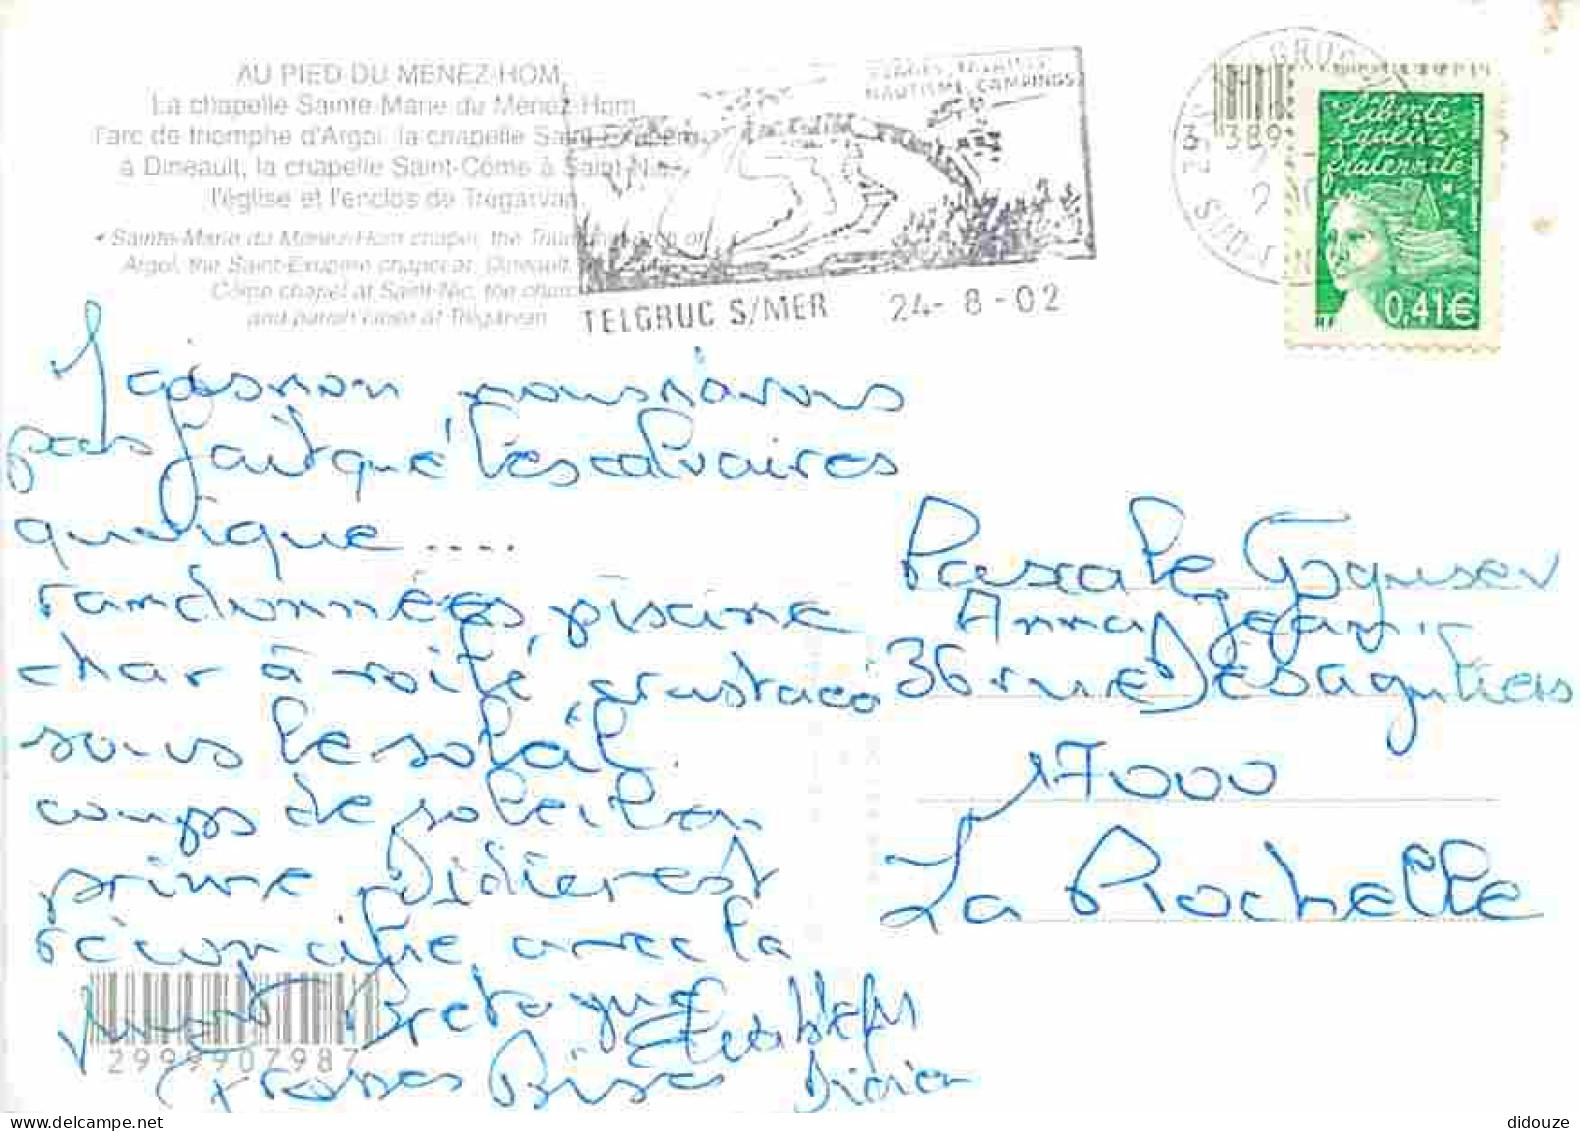 AU PIED DU MENEZ-HOM
La chapelle Sainte-Marie du Ménez-Hom
l'arc de triomphe d'Argol, la chapelle Saint-Exupère
à Dinéault, la chapelle Saint-Côme à Saint-Nic,
l'église et l'enclos de Trégarvan
Sainte-Marie du Menez-Hom chapel, the Triumphal arch of
Argol, the Saint-Exupère chapel at Dineault,
Côme chapel at Saint-Nic, the church
and parish close at Trégarvan
PLAGES, FALAISES
NAUTISME, CAMPINGS
TELGRUC S/MER 24-8-02
3 389
Liberté
Egalité
Fraternité
RF 0,41€
nous n'avons
pas fait que les calvaires
quoique ....
randonnées, piscine
char à voile, crustacés
sous le soleil.
coups de soleil en
prime. Didier est
réconcilié avec la
Bretagne
Grosses Bises Didier
Pascale
Anna Jean
36 rue Désaguliers
17000
La Rochelle
2999907987
didouze